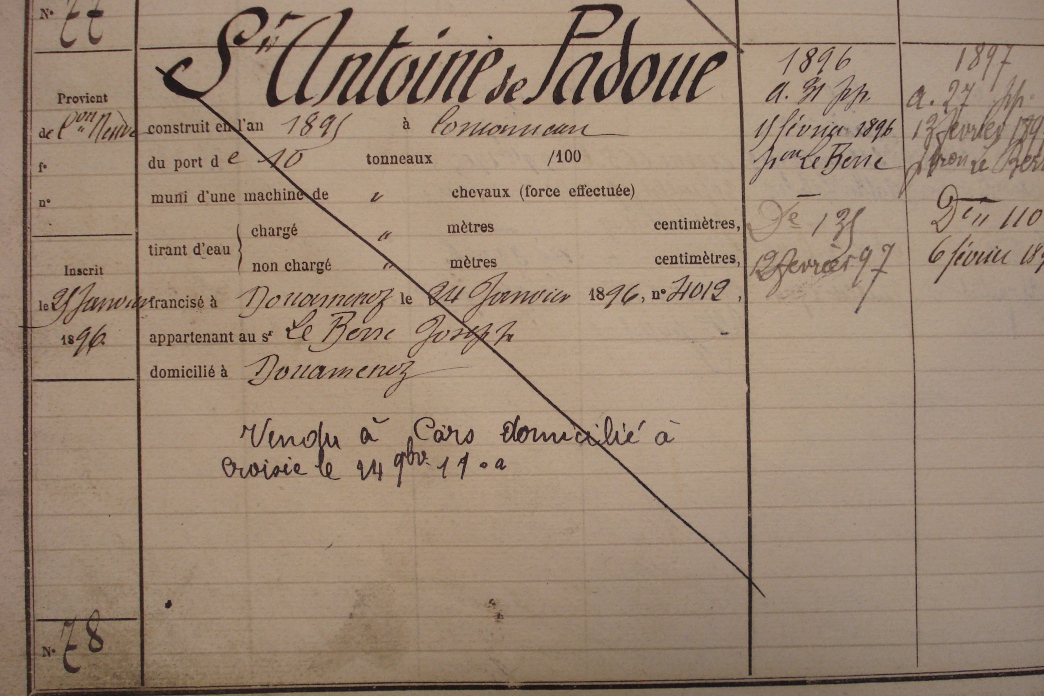 N° 77
St Antoine de Padoue
Provient
de Con Neuve
f°
n°
construit en l'an 1895 à
du port de 10 tonneaux /100
muni d'une machine de " chevaux (force effectuée)
tirant d'eau
chargé " mètres centimètres,
non chargé " mètres centimètres,
Inscrit
le 25 Janvier
1896
francisé à Douarnenez le 24 Janvier 1896, n° 4012,
appartenant au sr Le Berre Joseph
domicilié à Douarnenez
Vendu à Cars domicilié à
Croisic le 24 9bre
N° 78
1896
a. 31
11 février 1896
pon Le Berre
De 135
12 février 97
1897
a. 27
13 février 189
patron Le Ber
Den 110
6 février 189